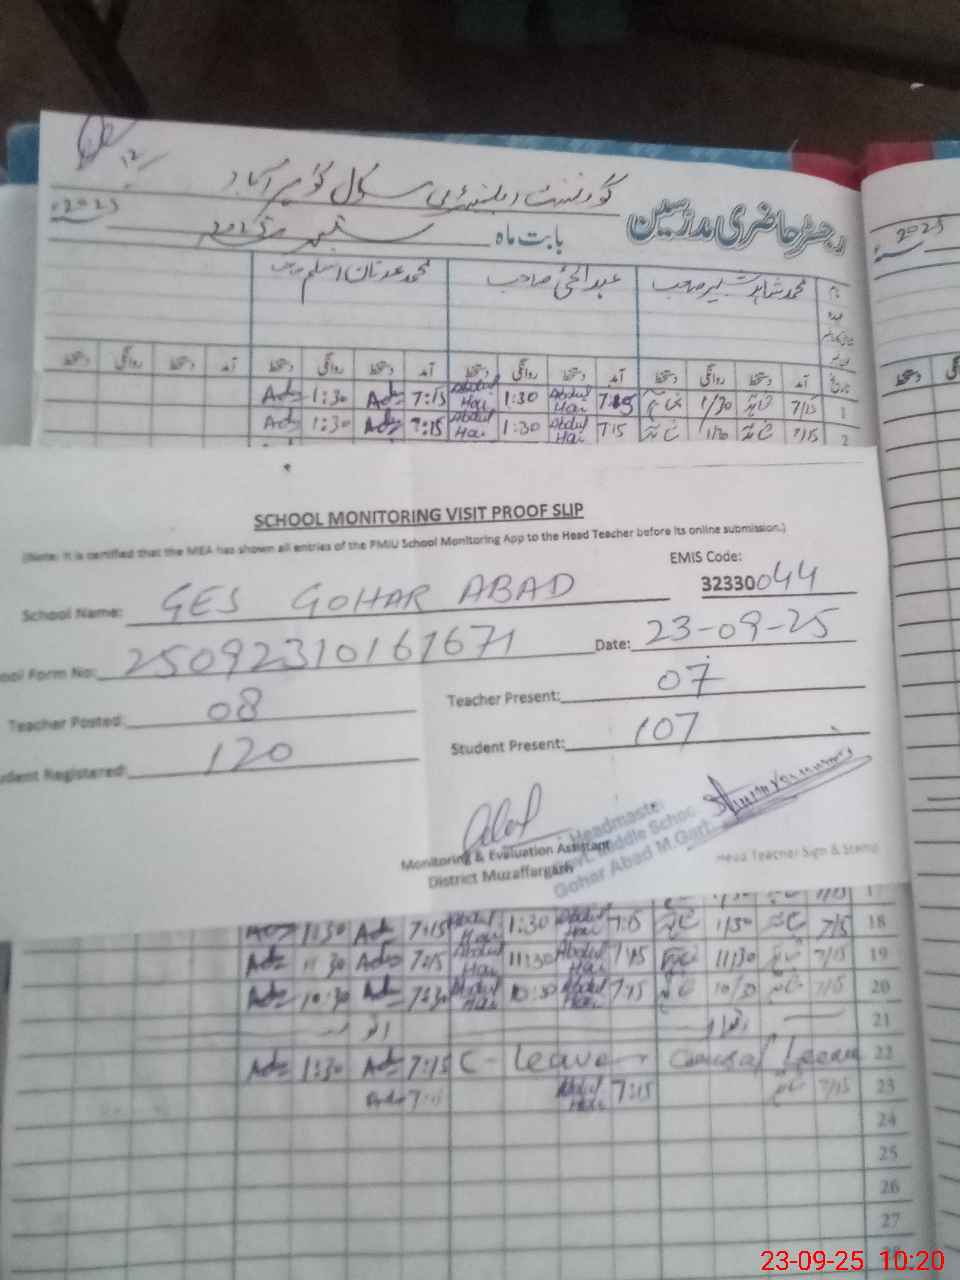 گورنمنٹ ایلیمنٹری سکول گوہر آباد
رجسٹر حاضری مدرسین
بابت ماہ ستمبر 2025
2025
محمد شاہد صاحب عبدالحئی صاحب محمد عدنان اسلم صاحب
تاریخ آمد دستخط روانگی دستخط آمد دستخط روانگی دستخط آمد دستخط روانگی دستخط آمد دستخط روانگی دستخط
Adz 1:30 Adz 7:15 Abdul Hai 1:30 Abdul Hai 7:15 1/30 7/15 1
Adz 1:30 Adz 7:15 Abdul Hai 1:30 Abdul Hai 7:15 1/30 7/15 2
SCHOOL MONITORING VISIT PROOF SLIP
(Note: It is certified that the MEA has shown all entries of the PMIU School Monitoring App to the Head Teacher before its online submission.)
EMIS Code:
School Name: GES GOHAR ABAD 32330044
ool Form No: 25092310161671 Date: 23-09-25
Teacher Posted: 08 Teacher Present: 07
udent Registered: 120 Student Present: 107
Monitoring & Evaluation Assistant
District Muzaffargarh
Headmaster
Govt. Middle School
Gohar Abad M.Garh
Head Teacher Sign & Stamp
Adz 1:30 Adz 7:15 Abdul Hai 1:30 Abdul Hai 7:15 1/30 7/15 18
Adz 11:30 Adz 7:15 Abdul Hai 11:30 Abdul Hai 7:15 11/30 7/15 19
Adz 10:30 Adz 7:30 Abdul Hai 10:30 Abdul Hai 7:15 10/30 7/15 20
اتوار اتوار 21
Adz 1:30 Adz 7:15 C- Leave Causal Leave 22
Adz 7:15 Abdul Hai 7:15 7/15 23
24
25
26
27
23-09-25 10:20